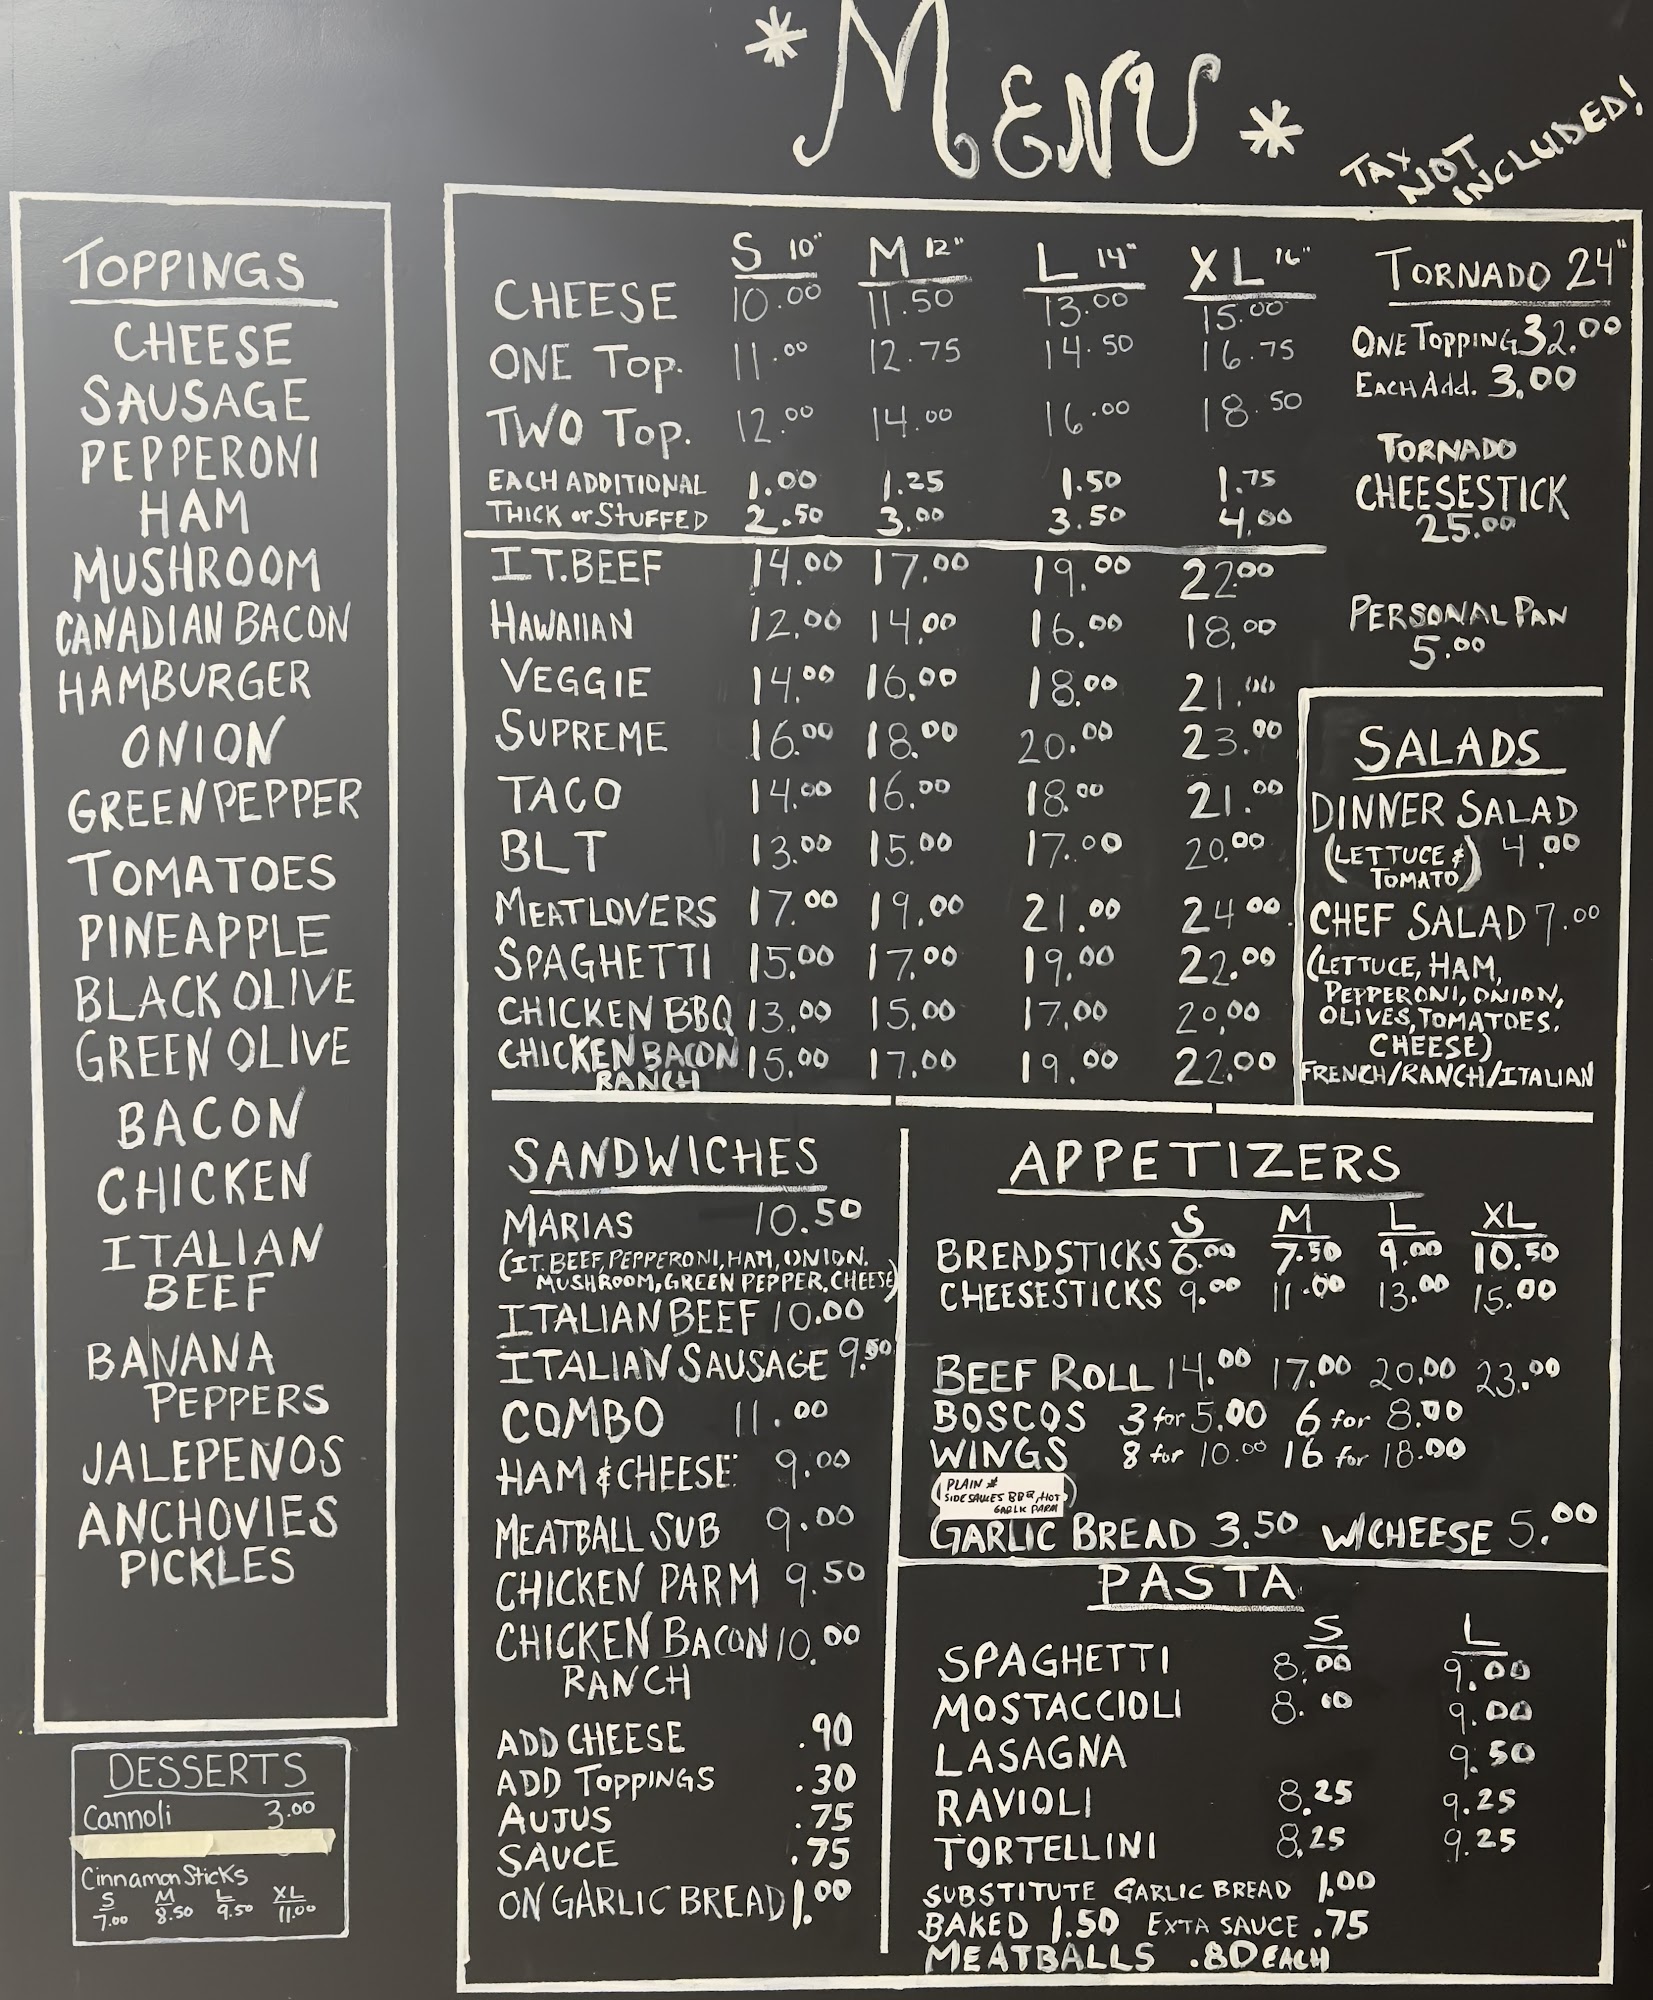 *MENU*
TAX NOT INCLUDED!
TOPPINGS
CHEESE
SAUSAGE
PEPPERONI
HAM
MUSHROOM
CANADIAN BACON
HAMBURGER
ONION
GREEN PEPPER
TOMATOES
PINEAPPLE
BLACK OLIVE
GREEN OLIVE
BACON
CHICKEN
ITALIAN
BEEF
BANANA
PEPPERS
JALEPENOS
ANCHOVIES
PICKLES
DESSERTS
Cannoli 3.00
Cinnamon Sticks
S M L XL
7.00 8.50 9.50 11.00
S 10" M 12" L 14" XL 16"
CHEESE 10.00 11.50 13.00 15.00
ONE TOP. 11.00 12.75 14.50 16.75
TWO TOP. 12.00 14.00 16.00 18.50
EACH ADDITIONAL 1.00 1.25 1.50 1.75
THICK or STUFFED 2.50 3.00 3.50 4.00
IT. BEEF 14.00 17.00 19.00 22.00
HAWAIIAN 12.00 14.00 16.00 18.00
VEGGIE 14.00 16.00 18.00 21.00
SUPREME 16.00 18.00 20.00 23.00
TACO 14.00 16.00 18.00 21.00
BLT 13.00 15.00 17.00 20.00
MEATLOVERS 17.00 19.00 21.00 24.00
SPAGHETTI 15.00 17.00 19.00 22.00
CHICKEN BBQ 13.00 15.00 17.00 20.00
CHICKEN BACON 15.00 17.00 19.00 22.00
RANCH
TORNADO 24"
ONE TOPPING 32.00
EACH Add. 3.00
TORNADO
CHEESESTICK
25.00
PERSONAL PAN
5.00
SALADS
DINNER SALAD
(LETTUCE & 4.00
TOMATO)
CHEF SALAD 7.00
(LETTUCE, HAM,
PEPPERONI, ONION,
OLIVES, TOMATOES.
CHEESE)
FRENCH/RANCH/ITALIAN
SANDWICHES
MARIAS 10.50
(IT. BEEF, PEPPERONI, HAM, ONION.
MUSHROOM, GREEN PEPPER, CHEESE)
ITALIAN BEEF 10.00
ITALIAN SAUSAGE 9.50
COMBO 11.00
HAM & CHEESE 9.00
MEATBALL SUB 9.00
CHICKEN PARM 9.50
CHICKEN BACON 10.00
RANCH
ADD CHEESE .90
ADD TOPPINGS .30
AUJUS .75
SAUCE .75
ON GARLIC BREAD 1.00
APPETIZERS
S M L XL
BREADSTICKS 6.00 7.50 9.00 10.50
CHEESESTICKS 9.00 11.00 13.00 15.00
BEEF ROLL 14.00 17.00 20.00 23.00
BOSCOS 3 for 5.00 6 for 8.00
WINGS 8 for 10.00 16 for 18.00
(PLAIN &
SIDE SAUCES BBQ, HOT
GARLIC PARM)
GARLIC BREAD 3.50 W/CHEESE 5.00
PASTA
S L
SPAGHETTI 8.00 9.00
MOSTACCIOLI 8.00 9.00
LASAGNA 9.50
RAVIOLI 8.25 9.25
TORTELLINI 8.25 9.25
SUBSTITUTE GARLIC BREAD 1.00
BAKED 1.50 EXTA SAUCE .75
MEATBALLS .80 EACH